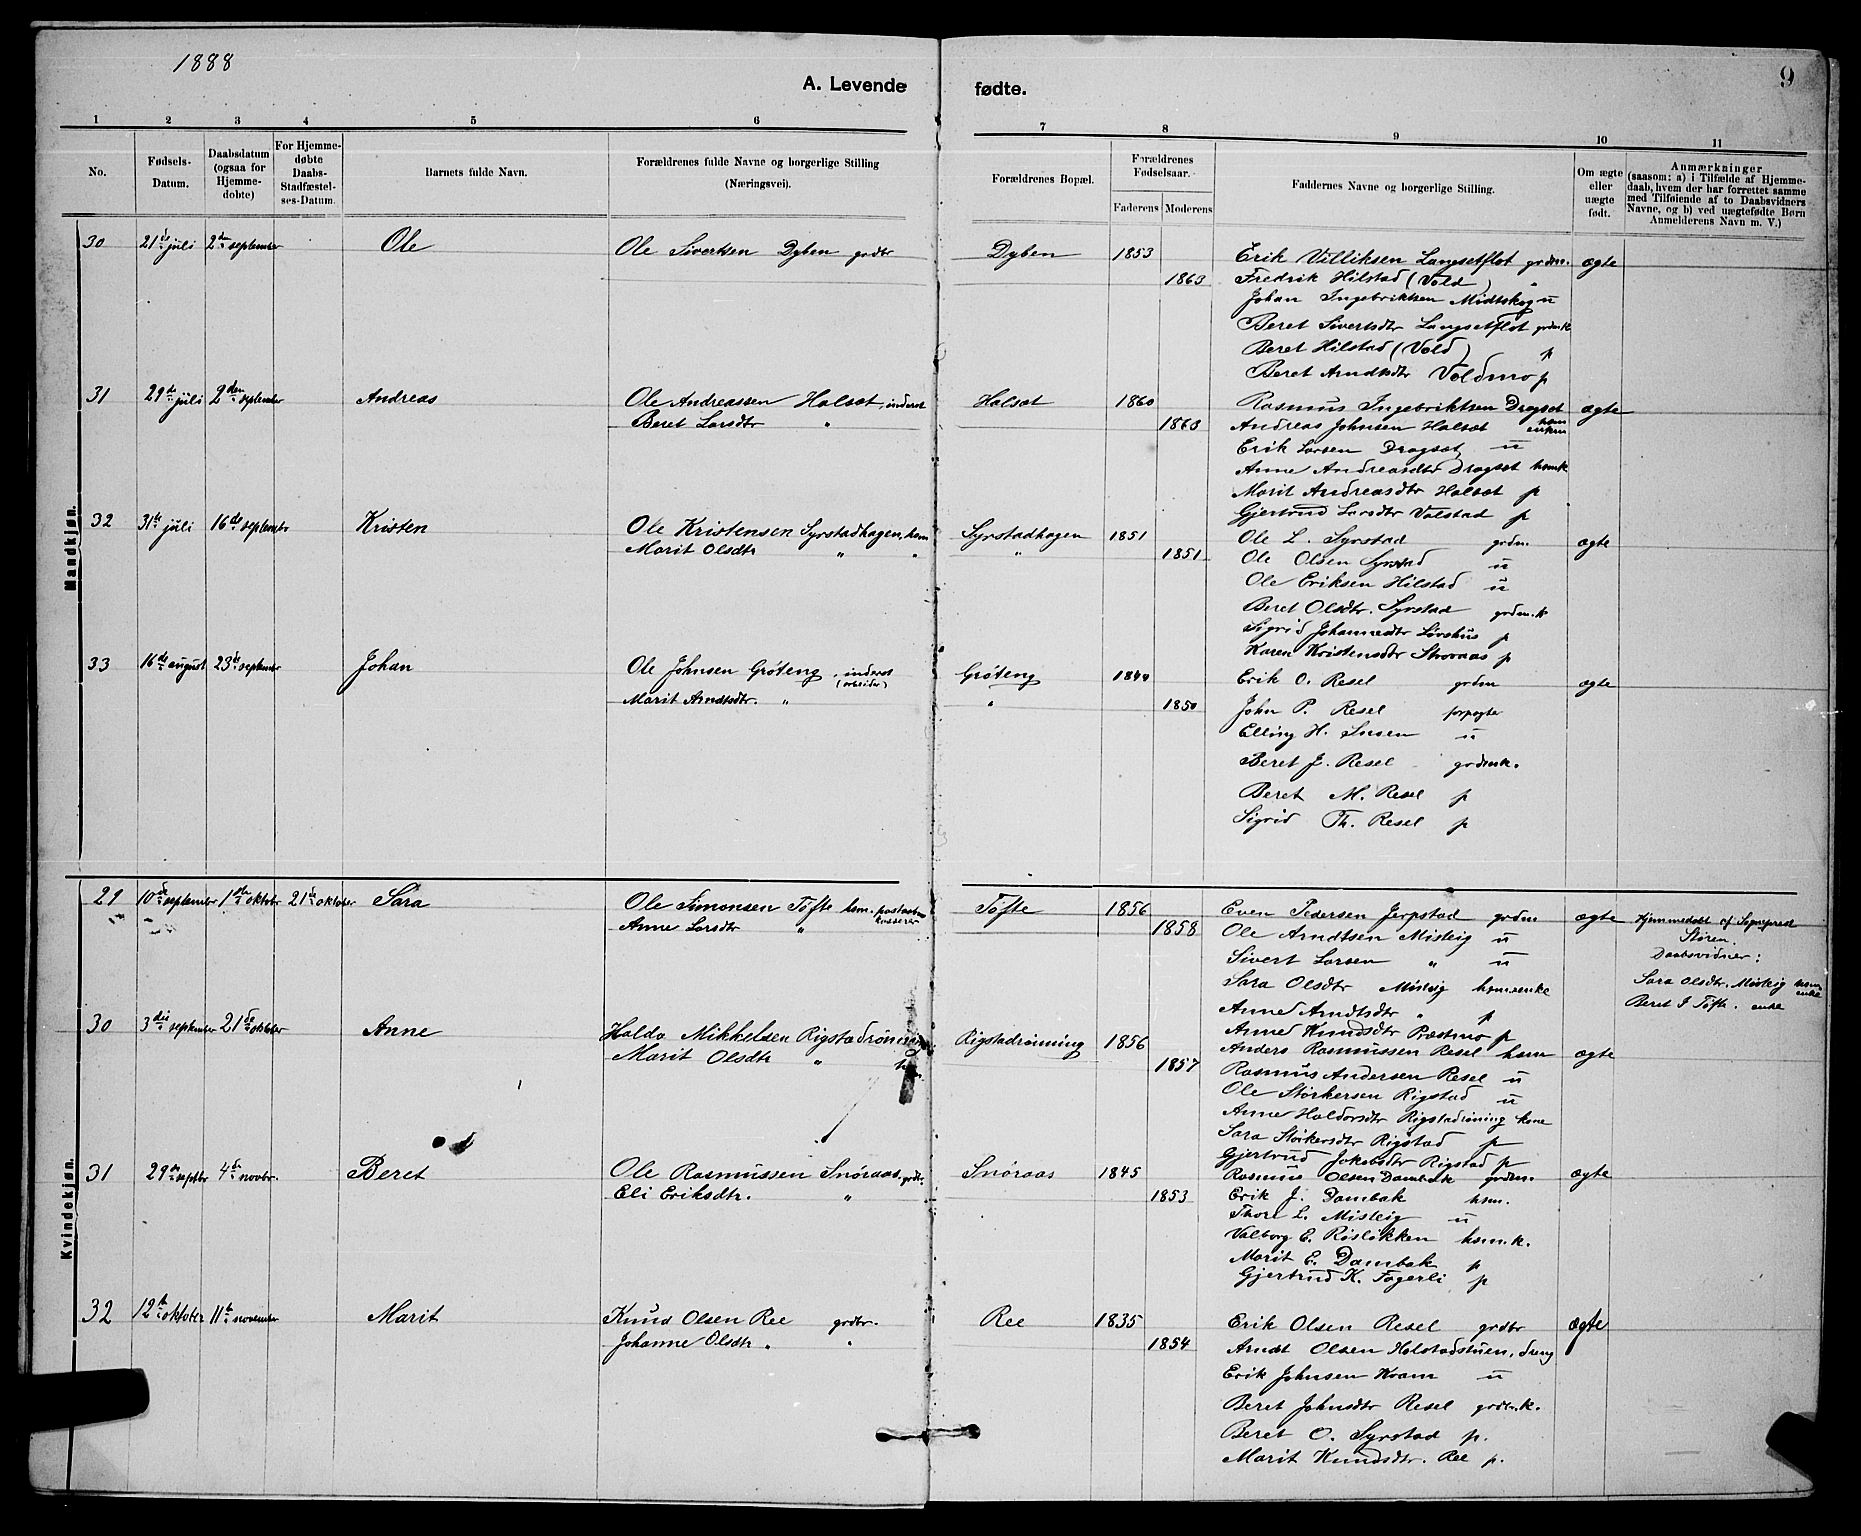 1888
A. Levende fødte.
9
1 2 3 4 5 6 7 8 9 10 11
No.
Fødsels-Datum.
Daabsdatum (ogsaa for Hjemme-døbte)
For Hjemme-døbte Daabs-Stadfæstel-ses-Datum.
Barnets fulde Navn.
Forældrenes fulde Navne og borgerlige Stilling (Næringsvei).
Forældrenes Bopæl.
Forældrenes Fødselsaar.
Faderens Moderens
Faddernes Navne og borgerlige Stilling.
Om ægte eller uægte født.
Anmærkninger
(saasom: a) i Tilfælde af Hjemme-daab, hvem der har forrettet samme med Tilføiende af to Daabsvidners Navne, og b) ved uægtefødte Børn Anmelderens Navn m. V.)
Mandkjøn.
30 21de juli 2den september Ole Ole Sivertsen Dyben grdbr Dyben 1853 Erik Villiksen Langsetflot grdm. ægte
1863 Fredrik Hilstad (Vold) "
Johan Ingebriktsen Midtskog u
Beret Sivertsdtr Langsetflot grdmk
Beret Hilstad (Vold) p
Beret Arndtsdtr Voldmo p
31 29de juli 2den september Andreas Ole Andreassen Halsæt, inderst Halsæt 1860 Rasmus Ingebriktsen Dragset ægte
Beret Larsdtr " 1863 Andreas Johnsen Halsæt hsm enkem
Erik Larsen Dragset u
Anne Andreasdtr Dragset hsmk
Marit Andreasdtr Halsæt p
Gjertrud Larsdtr Valstad p
32 31te juli 16de september Kristen Ole Kristensen Syrstadhagen, hsm Syrstadhagen 1851 Ole L. Syrstad grdm. ægte
Marit Olsdtr " " " 1851 Ole Olsen Syrstad u
Ole Eriksen Hilstad u
Beret Olsdtr. Syrstad grdm.k
Sigrid Johannesdtr Løvshus p
Karen Kristensdtr Storaas p
33 16de august 23de septemer Johan Ole Johnsen Grøteng, inderst (arbeider) Grøteng 1844 Erik O. Resel grdm ægte
Marit Arndtsdtr. " " 1850 John P. Resel forpagte
Elling H. Snsen u
Beret J. Resel grdmk.
Beret M. Resel p
Sigrid Th. Resel p
Kvindekjøn.
29 10de september 1ste oktobr 21de oktober Sara Ole Simonsen Tøfte hsm. kasserer Tøfte 1856 Even Pedersen Jerpstad grdm ægte Hjemmedøbt af Sognepræst
Anne Larsdtr " 1858 Ole Arndtsen Mislig u Støren.
Sivert Larsen " u Daabsvidner:
Sara Olsdtr Mislig hsm.enke Sara Olsdtr. Mislig hsm enke
Anne Arndtsdtr " p Beret J Tøfte. enke
Anne Knudsdtr Præstmo p
30 3die september 21de oktober Anne Haldo Mikkelsen Rigstadrønning Rigstadrønning 1856 Anders Rasmussen Resel hsm ægte
Marit Olsdtr " hsm. 1857 Rasmus Andersen Resel u
Ole Størkersen Rigstad u
Anne Haldorsdtr Rigstadrøning kone
Sara Størkersdtr Rigstad p
Gjertrud Jakobsdtr Rigstad p
31 29de septbr 4de novbr. Beret Ole Rasmussen Snøraas, grdbr. Snøraas 1845 Rasmus Olsen Dambæk grdm. ægte
Eli Eriksdtr. " 1853 Erik J. Dambak hsm.
Thore L. Mislig u
Valborg E. Røsløkken hsm.k.
Marit E. Dambak p
Gjertrud K. Fagerli p
32 12te oktober 11te november Marit Knud Olsen Ree grdbr. Ree 1835 Erik Olsen Resel grdbr ægte
Johanne Olsdtr " " 1854 Arndt Olsen Holstadstuen, dreng
Erik Johnsen Kvam u
Beret Johnsdtr Resel grdm.k.
Beret O. Syrstad p.
Marit Knudsdtr. Ree p.